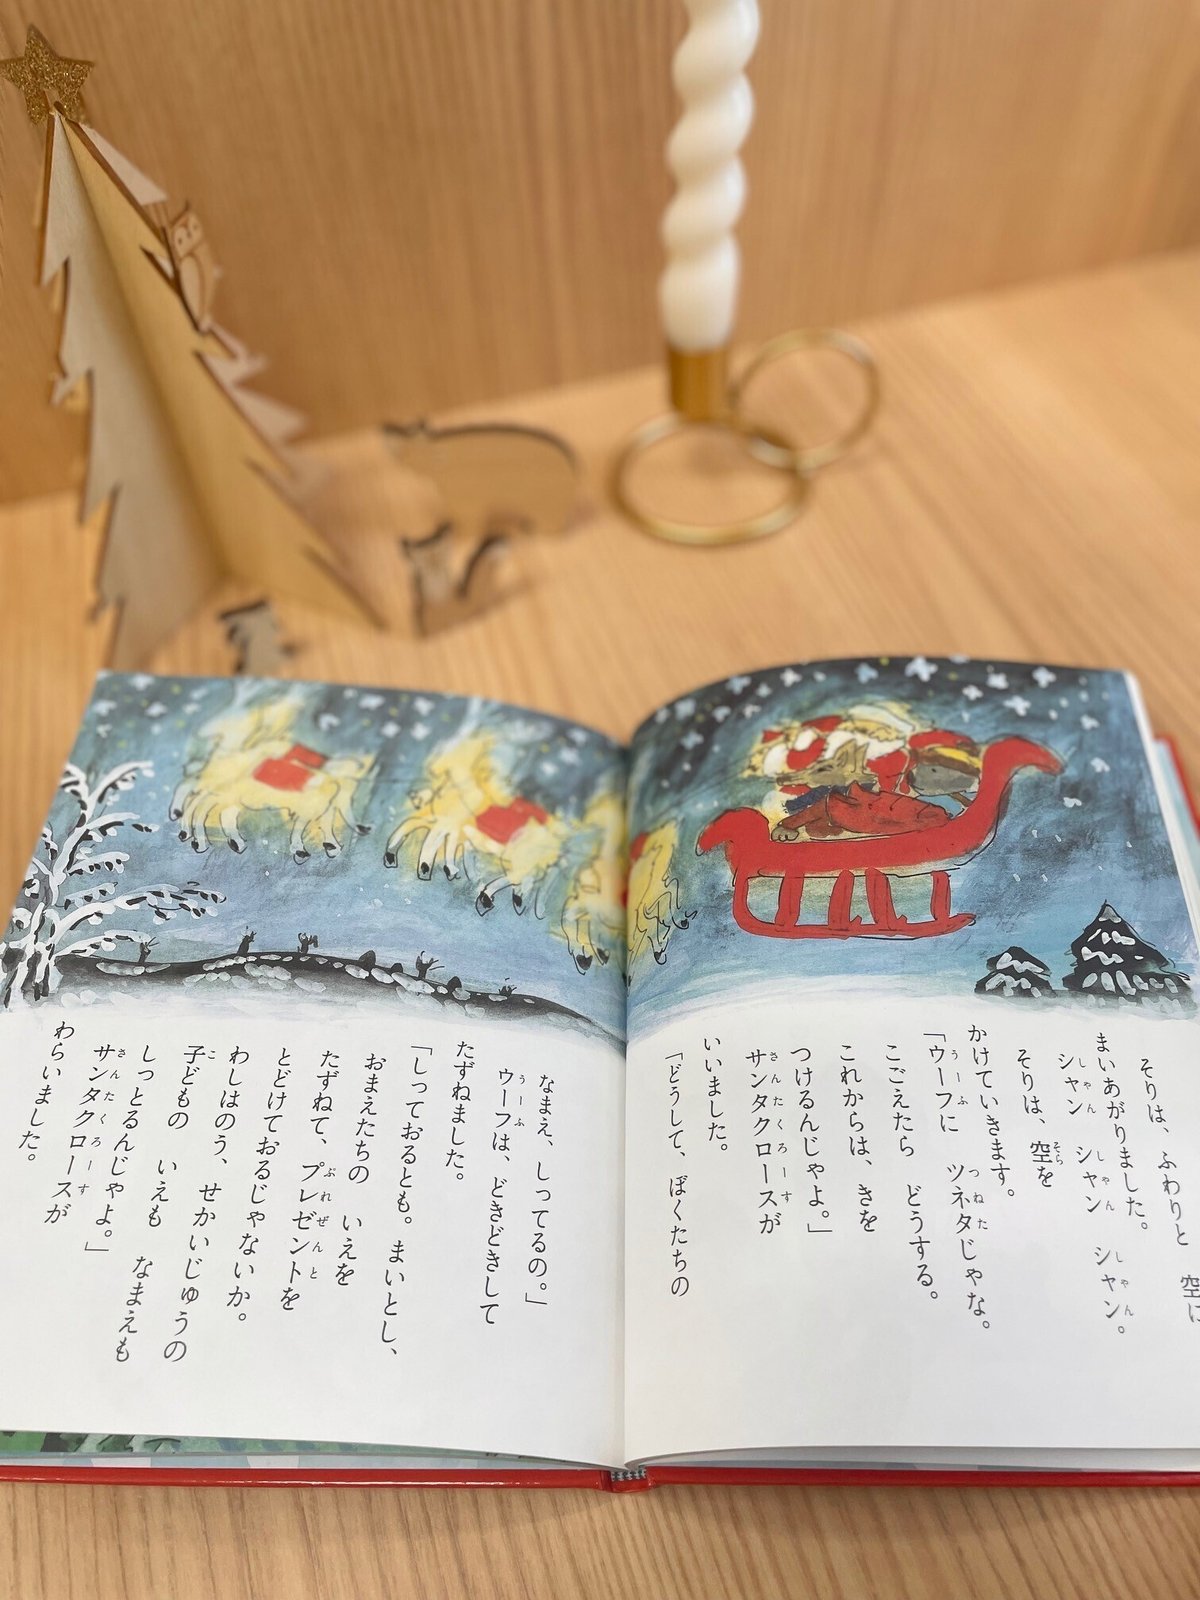 そりは、ふわりと 空に
まいあがりました。
シャン シャン シャン。
そりは、空を
かけていきます。
「ウーフに ツネタじゃな。
こごえたら どうする。
これからは、きを
つけるんじゃよ。」
サンタクロースが
いいました。
「どうして、ぼくたちの
なまえ、しってるの。」
ウーフは、どきどきして
たずねました。
「しっておるとも。まいとし、
おまえたちの いえを
たずねて、プレゼントを
とどけておるじゃないか。
わしはのう、せかいじゅうの
子どもの いえも なまえも
しっとるんじゃよ。」
サンタクロースが
わらいました。